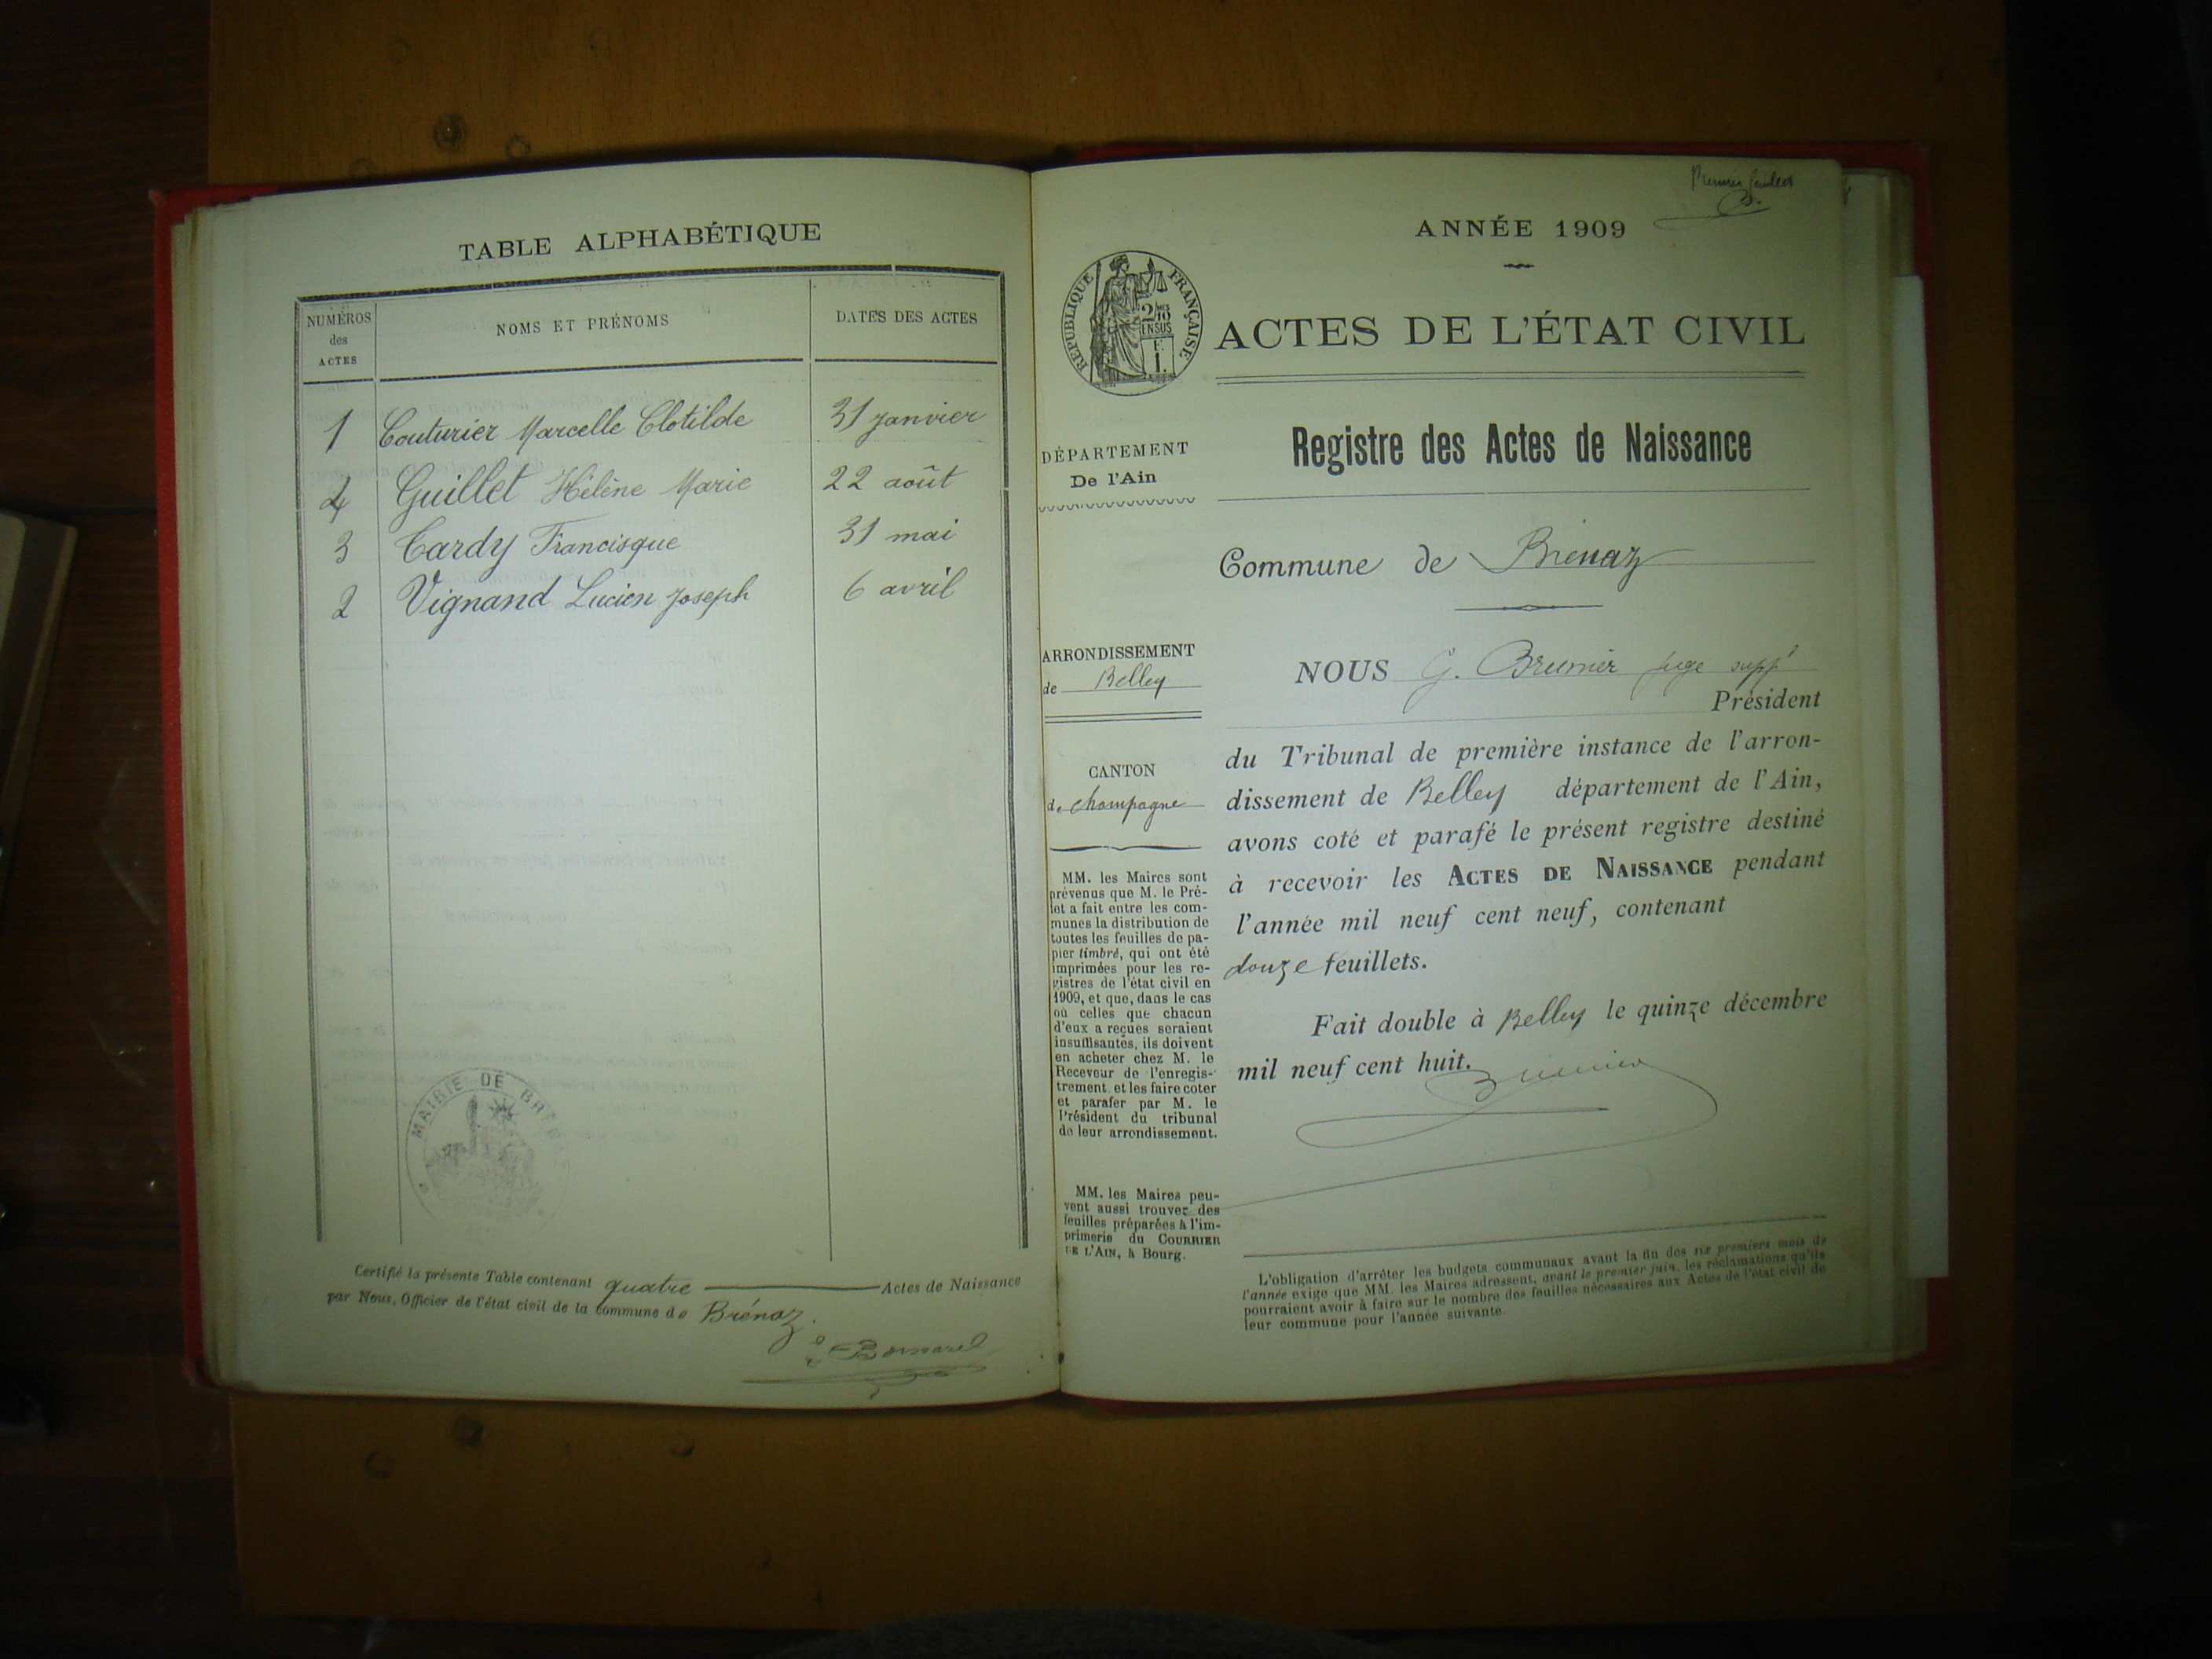 TABLE ALPHABÉTIQUE
NUMÉROS des ACTES
NOMS ET PRÉNOMS
DATES DES ACTES
1 Couturier Marcelle Clotilde 31 janvier
4 Guillet Hélène Marie 22 août
3 Tardy Francisque 31 mai
2 Vignand Lucien Joseph 6 avril
MAIRIE DE
Certifié la présente Table contenant quatre Actes de Naissance
par Nous, Officier de l'état civil de la commune de Brénaz.
Premier feuillet
ANNÉE 1909
RÉPUBLIQUE FRANÇAISE
2/10 EN SUS
1 F.
ACTES DE L'ÉTAT CIVIL
Registre des Actes de Naissance
DÉPARTEMENT
De l'Ain
Commune de Brénaz
ARRONDISSEMENT
de Belley
CANTON
de Champagne
MM. les Maires sont
prévenus que M. le Pré-
fet a fait entre les com-
munes la distribution de
toutes les feuilles de pa-
pier timbré, qui ont été
imprimées pour les re-
gistres de l'état civil en
1909, et que, dans le cas
où celles que chacun
d'eux a reçues seraient
insuffisantes, ils doivent
en acheter chez M. le
Receveur de l'enregis-
trement et les faire coter
et parafer par M. le
Président du tribunal
de leur arrondissement.
MM. les Maires peu-
vent aussi trouver des
feuilles préparées à l'im-
primerie du COURRIER
DE L'AIN, à Bourg.
NOUS G. Brunier juge suppt
Président
du Tribunal de première instance de l'arron-
dissement de Belley département de l'Ain,
avons coté et parafé le présent registre destiné
à recevoir les ACTES DE NAISSANCE pendant
l'année mil neuf cent neuf, contenant
douze feuillets.
Fait double à Belley le quinze décembre
mil neuf cent huit.
L'obligation d'arrêter les budgets communaux avant la fin des six premiers mois de
l'année exige que MM. les Maires adressent, avant le premier juin, les réclamations qu'ils
pourraient avoir à faire sur le nombre des feuilles nécessaires aux Actes de l'état civil de
leur commune pour l'année suivante.